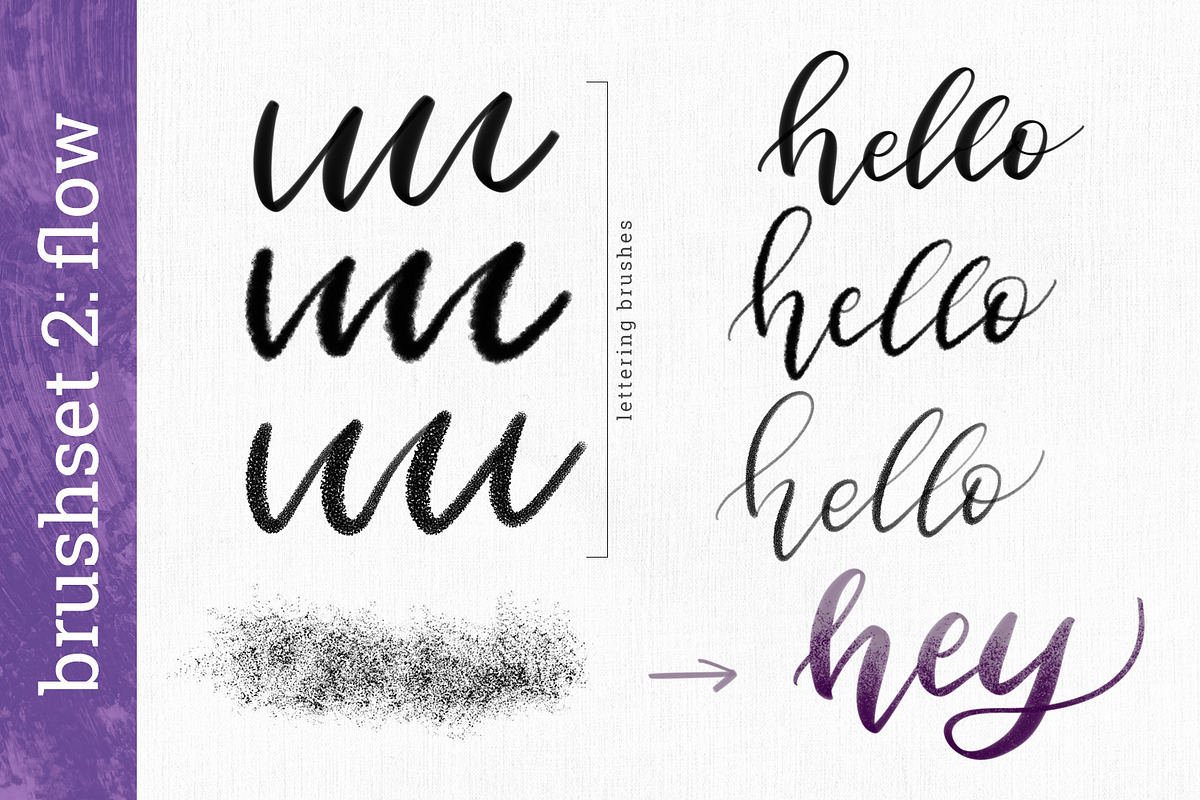 brushset 2: flow
lettering brushes
hello
hello
hello
hey